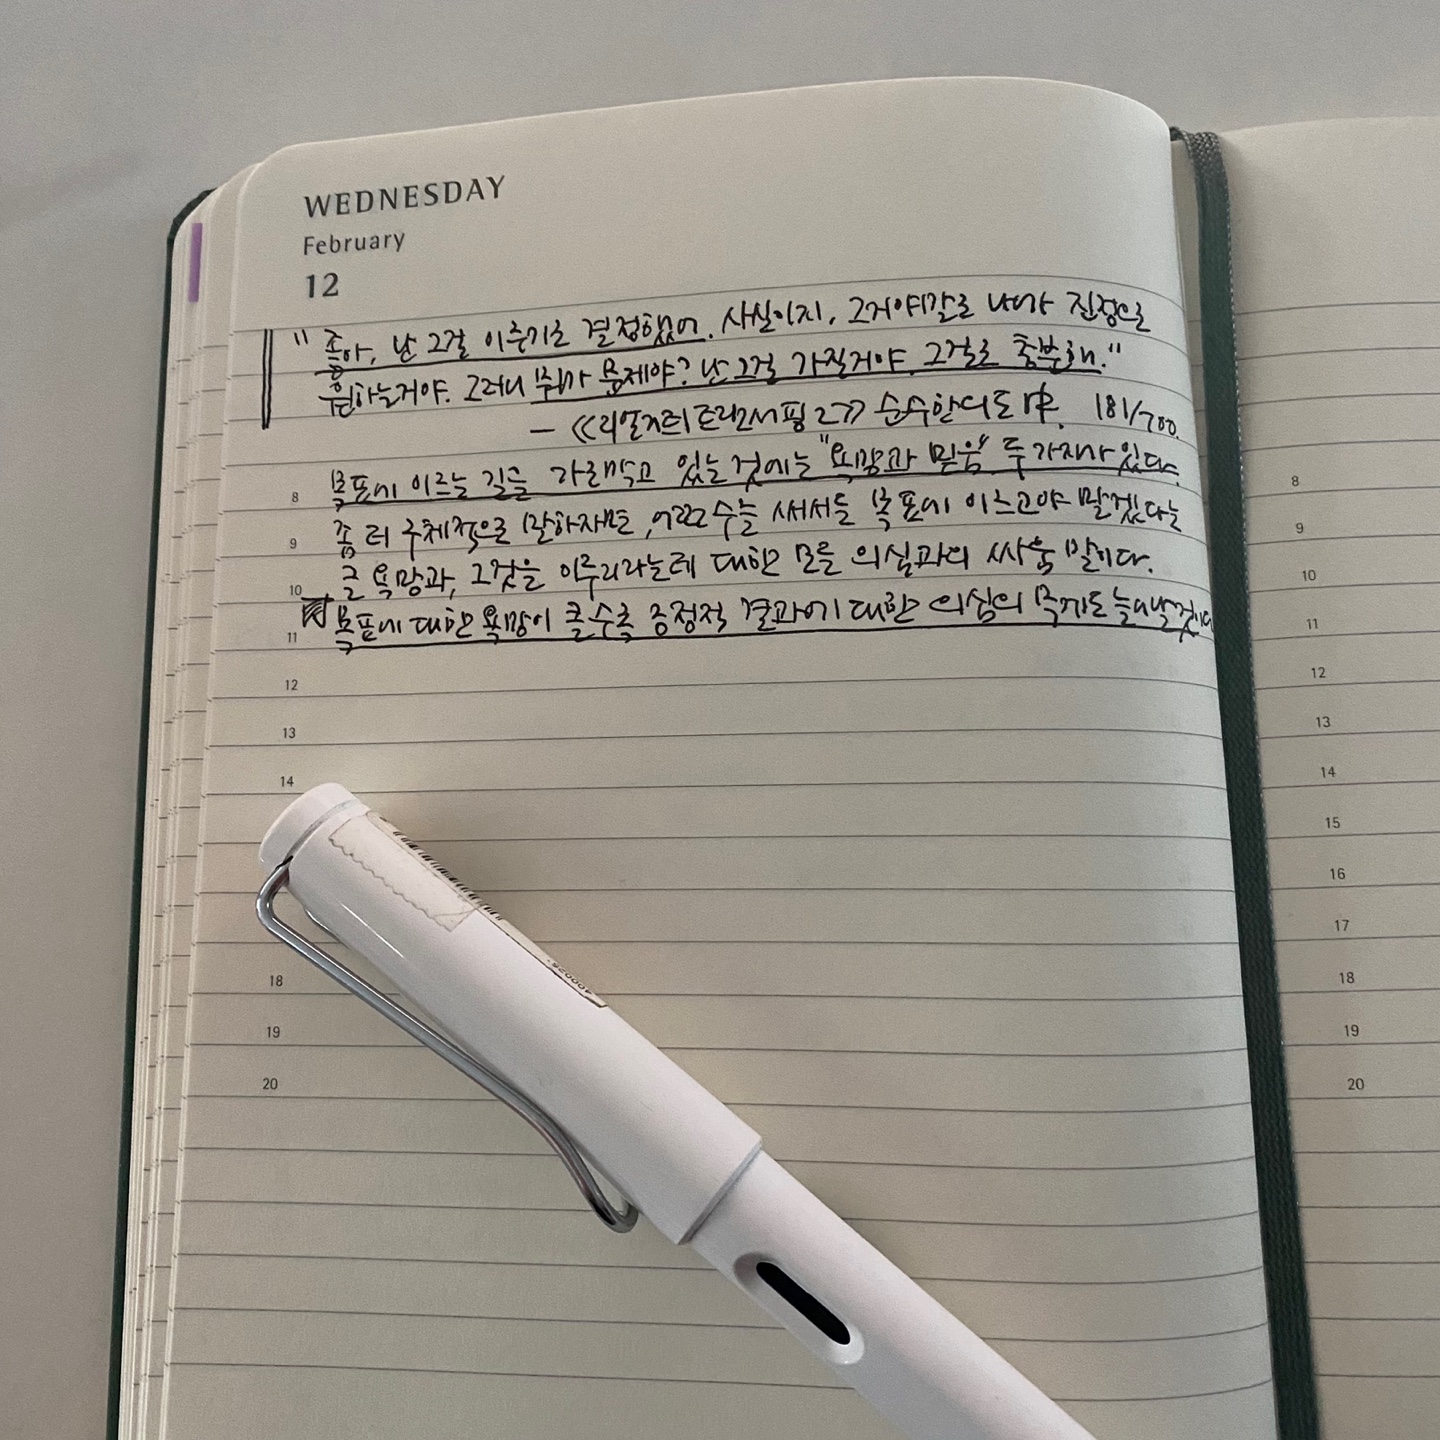 WEDNESDAY
February
12
"좋아, 난 그걸 이루기로 결정했어. 사실이지, 그거야말로 내가 진정으로
원하는거야. 그러니 뭐가 문제야? 난 그걸 가질거야. 그걸로 충분해."
— 《리얼리티 트랜서핑 2》 순수한 의도 中. 181/700.
8 목표에 이르는 길을 가로막고 있는 것에는 "욕망과 믿음" 두 가지가 있다.
9 좀 더 구체적으로 말하자면, 어떤 수를 써서든 목표에 이르고야 말겠다는
10 큰 욕망과, 그것을 이루리라는데 대한 모든 의심과의 싸움 말이다.
11 목표에 대한 욕망이 클수록 긍정적 결과에 대한 의심의 무게도 늘어날 것이다
12
13
14
18
19
20
8
9
10
11
12
13
14
15
16
17
18
19
20